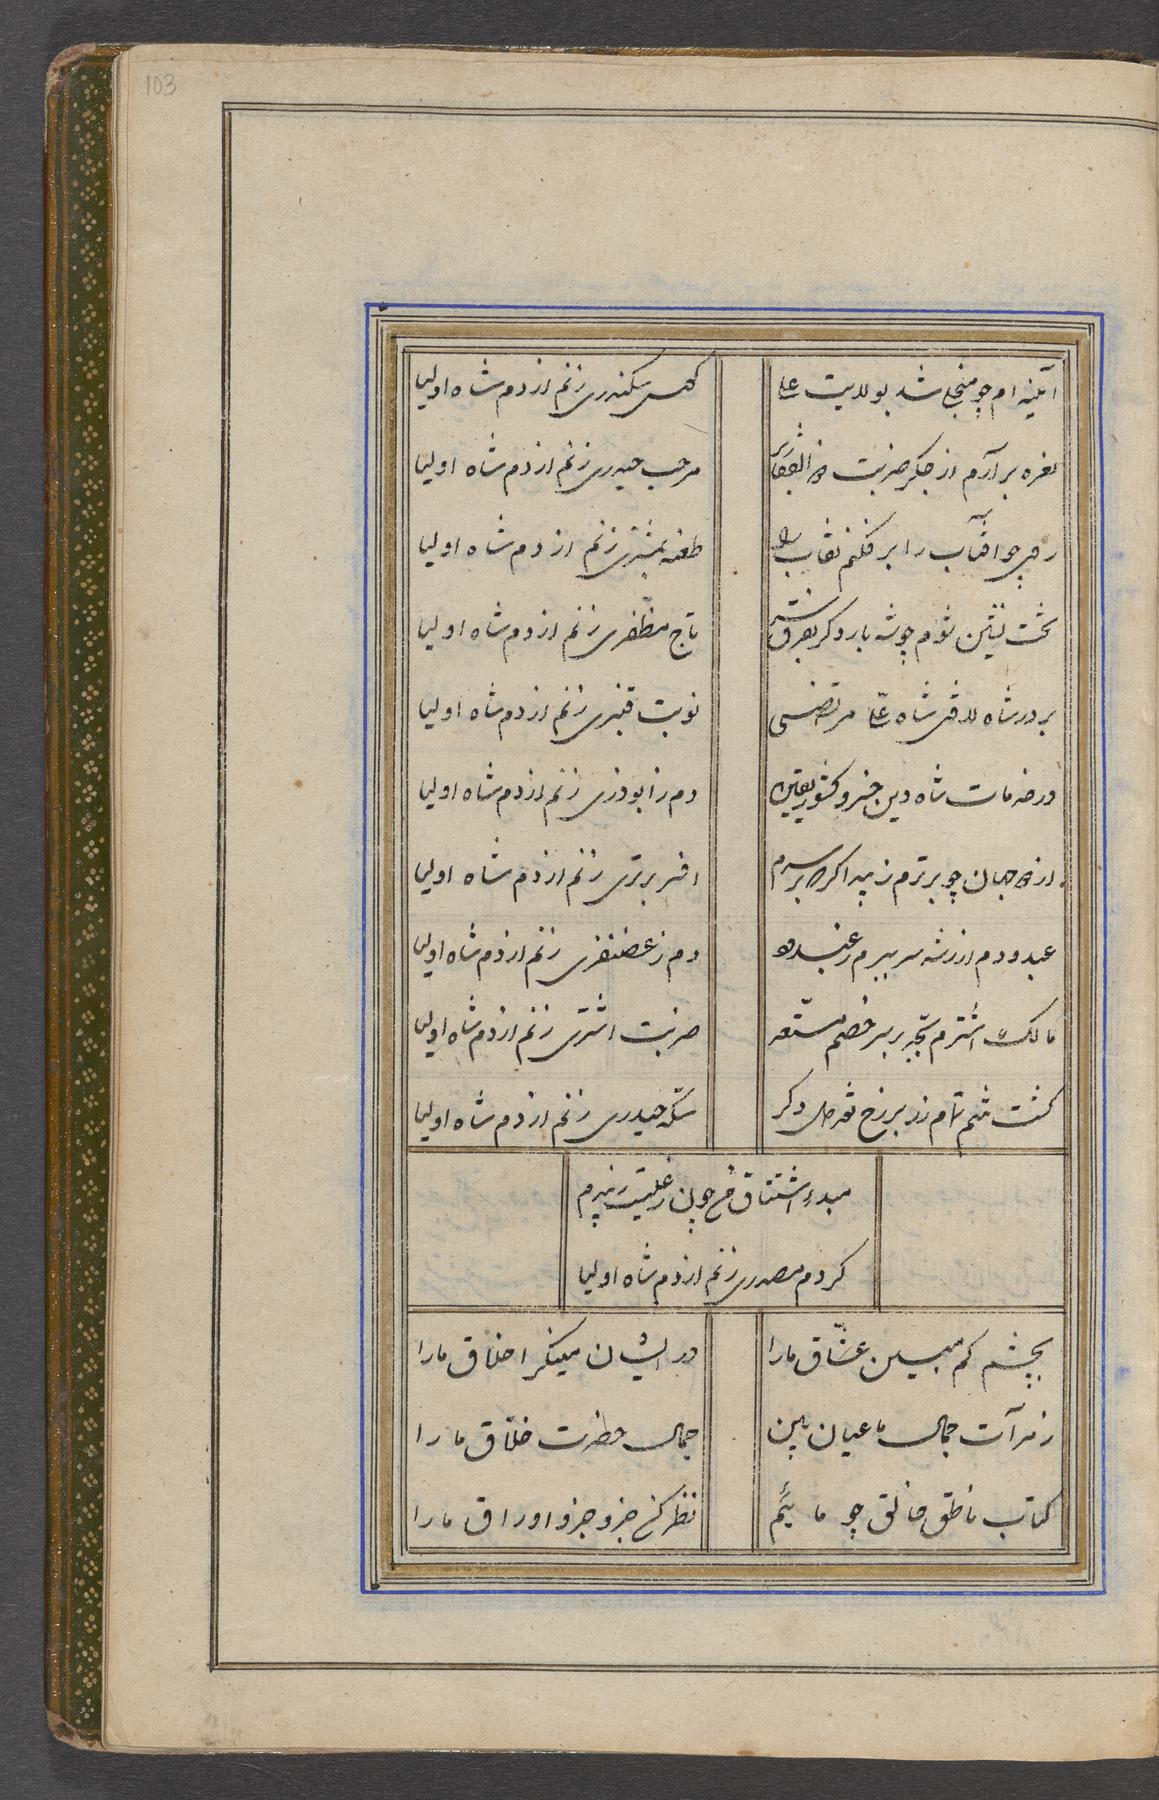 103
آینه ام چو منجلی شد بولایت علی
کوس سکندری زنم از دم شاه اولیا
نعره برآرم از جگر ضربت ذوالفقار
مرحب حیدری زنم از دم شاه اولیا
رخ چو افتاب را بر فکنم نقاب
طعنه بمشتری زنم از دم شاه اولیا
تخت نشین شوم چو شه بار دگر بفرق
تاج مظفری زنم از دم شاه اولیا
بر در شاه لافتی شاه علی مرتضی
نوبت قنبری زنم از دم شاه اولیا
در خدمات شاه دین خسرو کشور یقین
دم ز ابوذری زنم از دم شاه اولیا
از دو جهان چو برترم زیبد اگر که بر سرم
افسر برتری زنم از دم شاه اولیا
عبدودم از سر ببرم
دم ز غضنفری زنم از دم شاه اولیا
مالک اشترم بر سر خصم
ضربت اشتری زنم از دم شاه اولیا
گشت تنم تمام زر بر زخ دگر
سکّه حیدری زنم از دم شاه اولیا
مبدء اشتقاق چون ز علیست
کر دم مصدری زنم از دم شاه اولیا
بچشم کم مبین عشّاق مارا
در ایشان مینگر اخلاق مارا
ز مرآت جمال ما عیان بین
جمال حضرت خلّاق مارا
کتاب ناطق خالق چو مائیم
نظر کن جزو جزو اوراق مارا